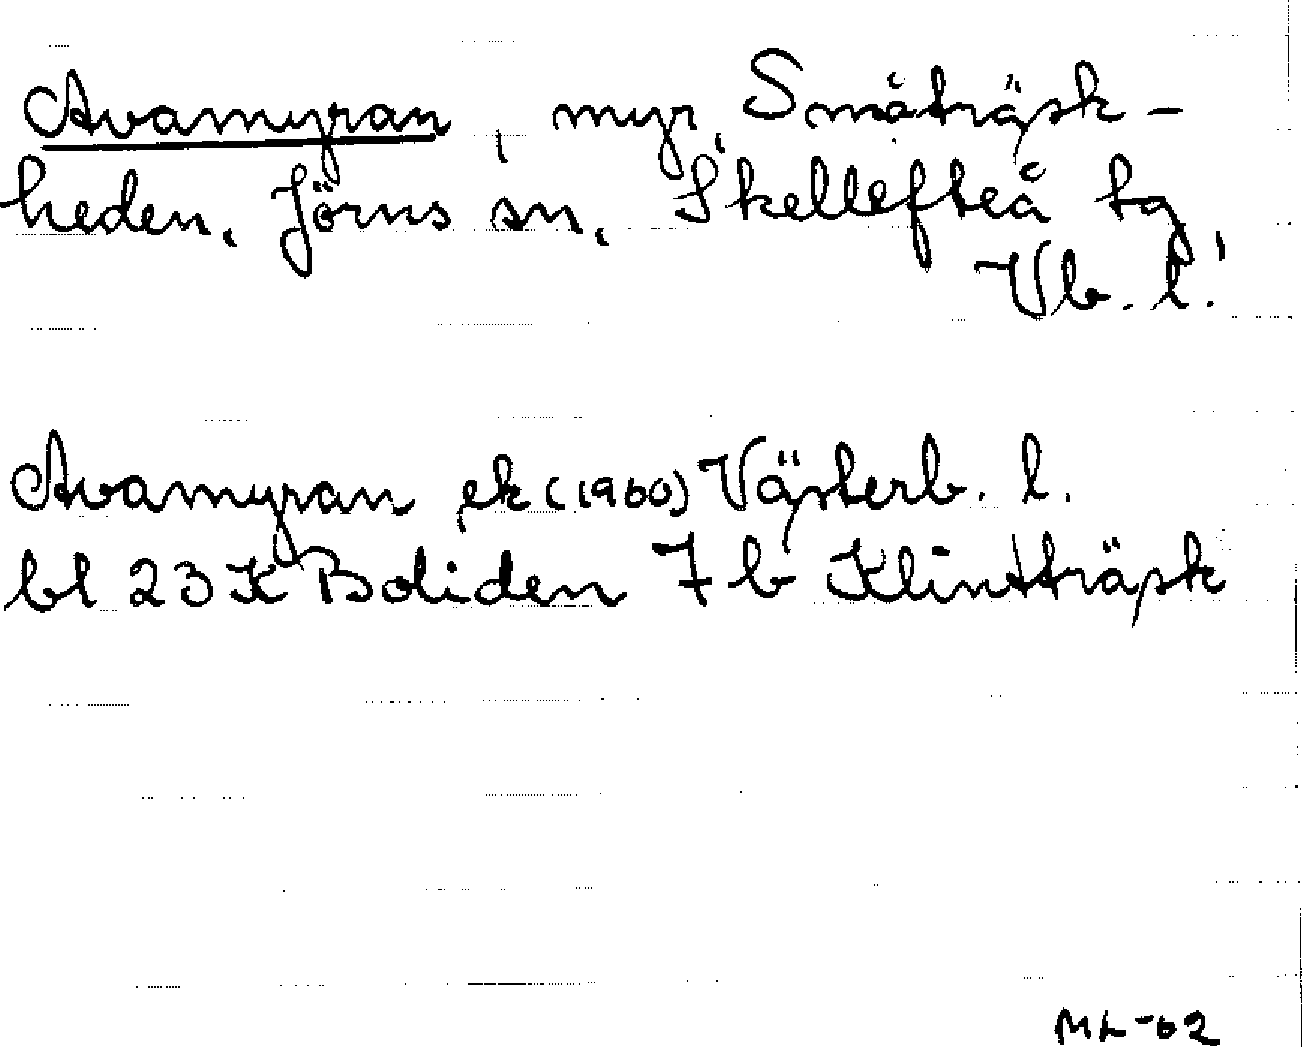 Avamyran, myr, Småträsk-
heden, Jörns sn, Skellefteå tg,
Vb. l.
Avamyran ek (1960) Västerb. l.
bl 23 K Boliden 7 b Klintträsk
ML-62